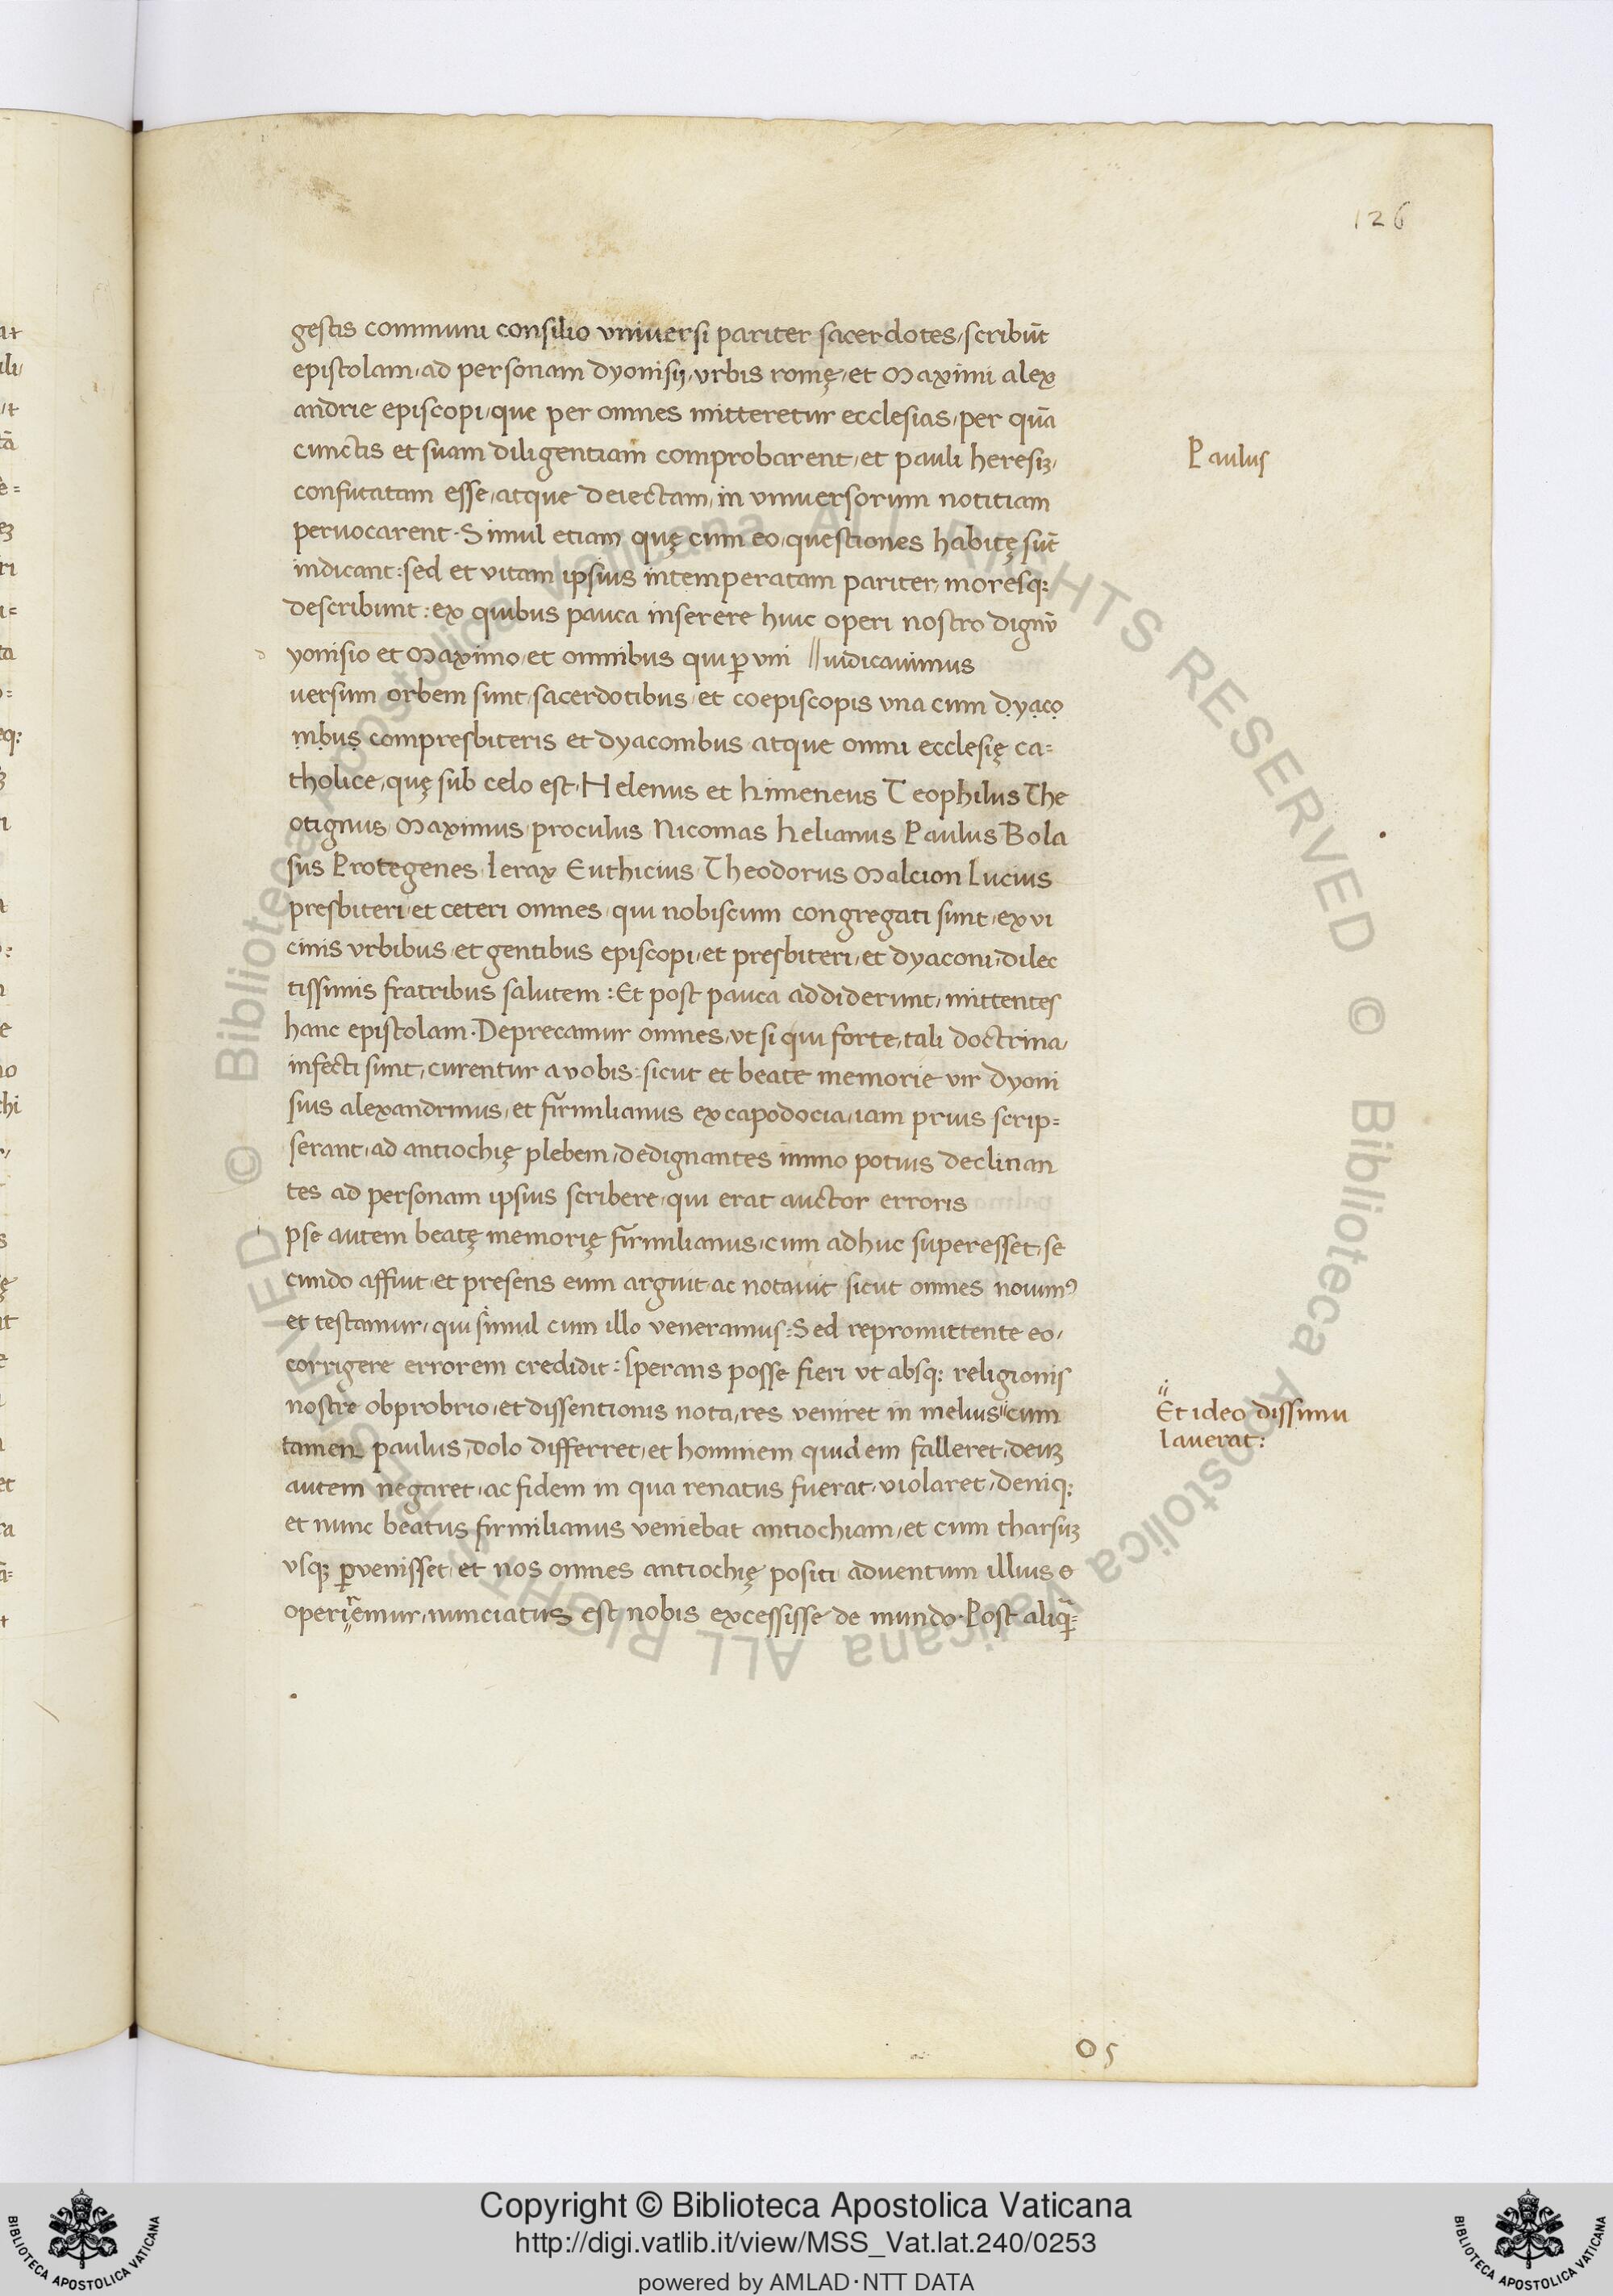 126
gestis communi consilio vniuersi pariter sacerdotes, scribūt
epistolam, ad personam dyonisij, vrbis romę, et Maximi alex
andrie episcopi, que per omnes mitteretur ecclesias, per quā
cunctis et suam diligentiam comprobarent, et pauli heresiꝫ,
Paulus
confutatam esse, atque deiectam, in vniuersorum notitiam
peruocarent. Simul etiam quę cum eo, questiones habitę sūt
indicant: sed et vitam ipsius intemperatam pariter, moresq:
describunt: ex quibus pauca inserere huic operi nostro dignū
d yonisio et Maximo, et omnibus qui ꝑ vni // iudicauimus
uersum orbem sunt, sacerdotibus, et coepiscopis vna cum dyaco
nibus compresbiteris et dyaconibus atque omni ecclesię ca=
tholice, quę sub celo est, Helenus et himeneus Teophilus The
otignus, Maximus, proculus Nicomas helianus Paulus Bola
sus Protegenes, Ierax Euthicius, Theodorus Malcion Lucius
presbiteri, et ceteri omnes, qui nobiscum congregati sunt, ex vi
cinis vrbibus, et gentibus episcopi, et presbiteri, et dyaconi, dilec
tissimis fratribus salutem: Et post pauca addiderunt, mittentes
hanc epistolam. Deprecamur omnes, vt si qui forte, tali doctrina,
infecti sunt, curentur a vobis: sicut et beate memorie vir dyoni
sius alexandrinus, et firmilianus ex capodocia, iam prius scrip=
serant, ad antiochię plebem, dedignantes immo potius declinan
tes ad personam ipsius scribere, qui erat auctor erroris
i pse autem beatę memorię firmilianus, cum adhuc superesset, se
cundo affuit, et presens eum arguit ac notauit sicut omnes nouimꝰ
et testamur, qui simul cum illo veneramus: Sed repromittente eo,
corrigere errorem credidit: sperans posse fieri vt absq: religionis
nostre obprobrio, et dissentionis nota, res veniret in melius // cum
// Et ideo dissimu
lauerat:
tamen paulus, dolo differret, et hominem quidem falleret, deuꝫ
autem negaret, ac fidem in qua renatus fuerat, violaret, deniq:
et nunc beatus firmilianus veniebat antiochiam, et cum tharsuꝫ
vsqꝫ ꝑvenisset, et nos omnes antiochię positi aduentum illius o
operiremur, nunciatus est nobis excessisse de mundo. Post aliqꝫ=
05
© Biblioteca Apostolica Vaticana ALL RIGHTS RESERVED © Biblioteca Apostolica Vaticana ALL RIGHTS RESERVED
BIBLIOTECA APOSTOLICA VATICANA
Copyright © Biblioteca Apostolica Vaticana
http://digi.vatlib.it/view/MSS_Vat.lat.240/0253
powered by AMLAD·NTT DATA
BIBLIOTECA APOSTOLICA VATICANA